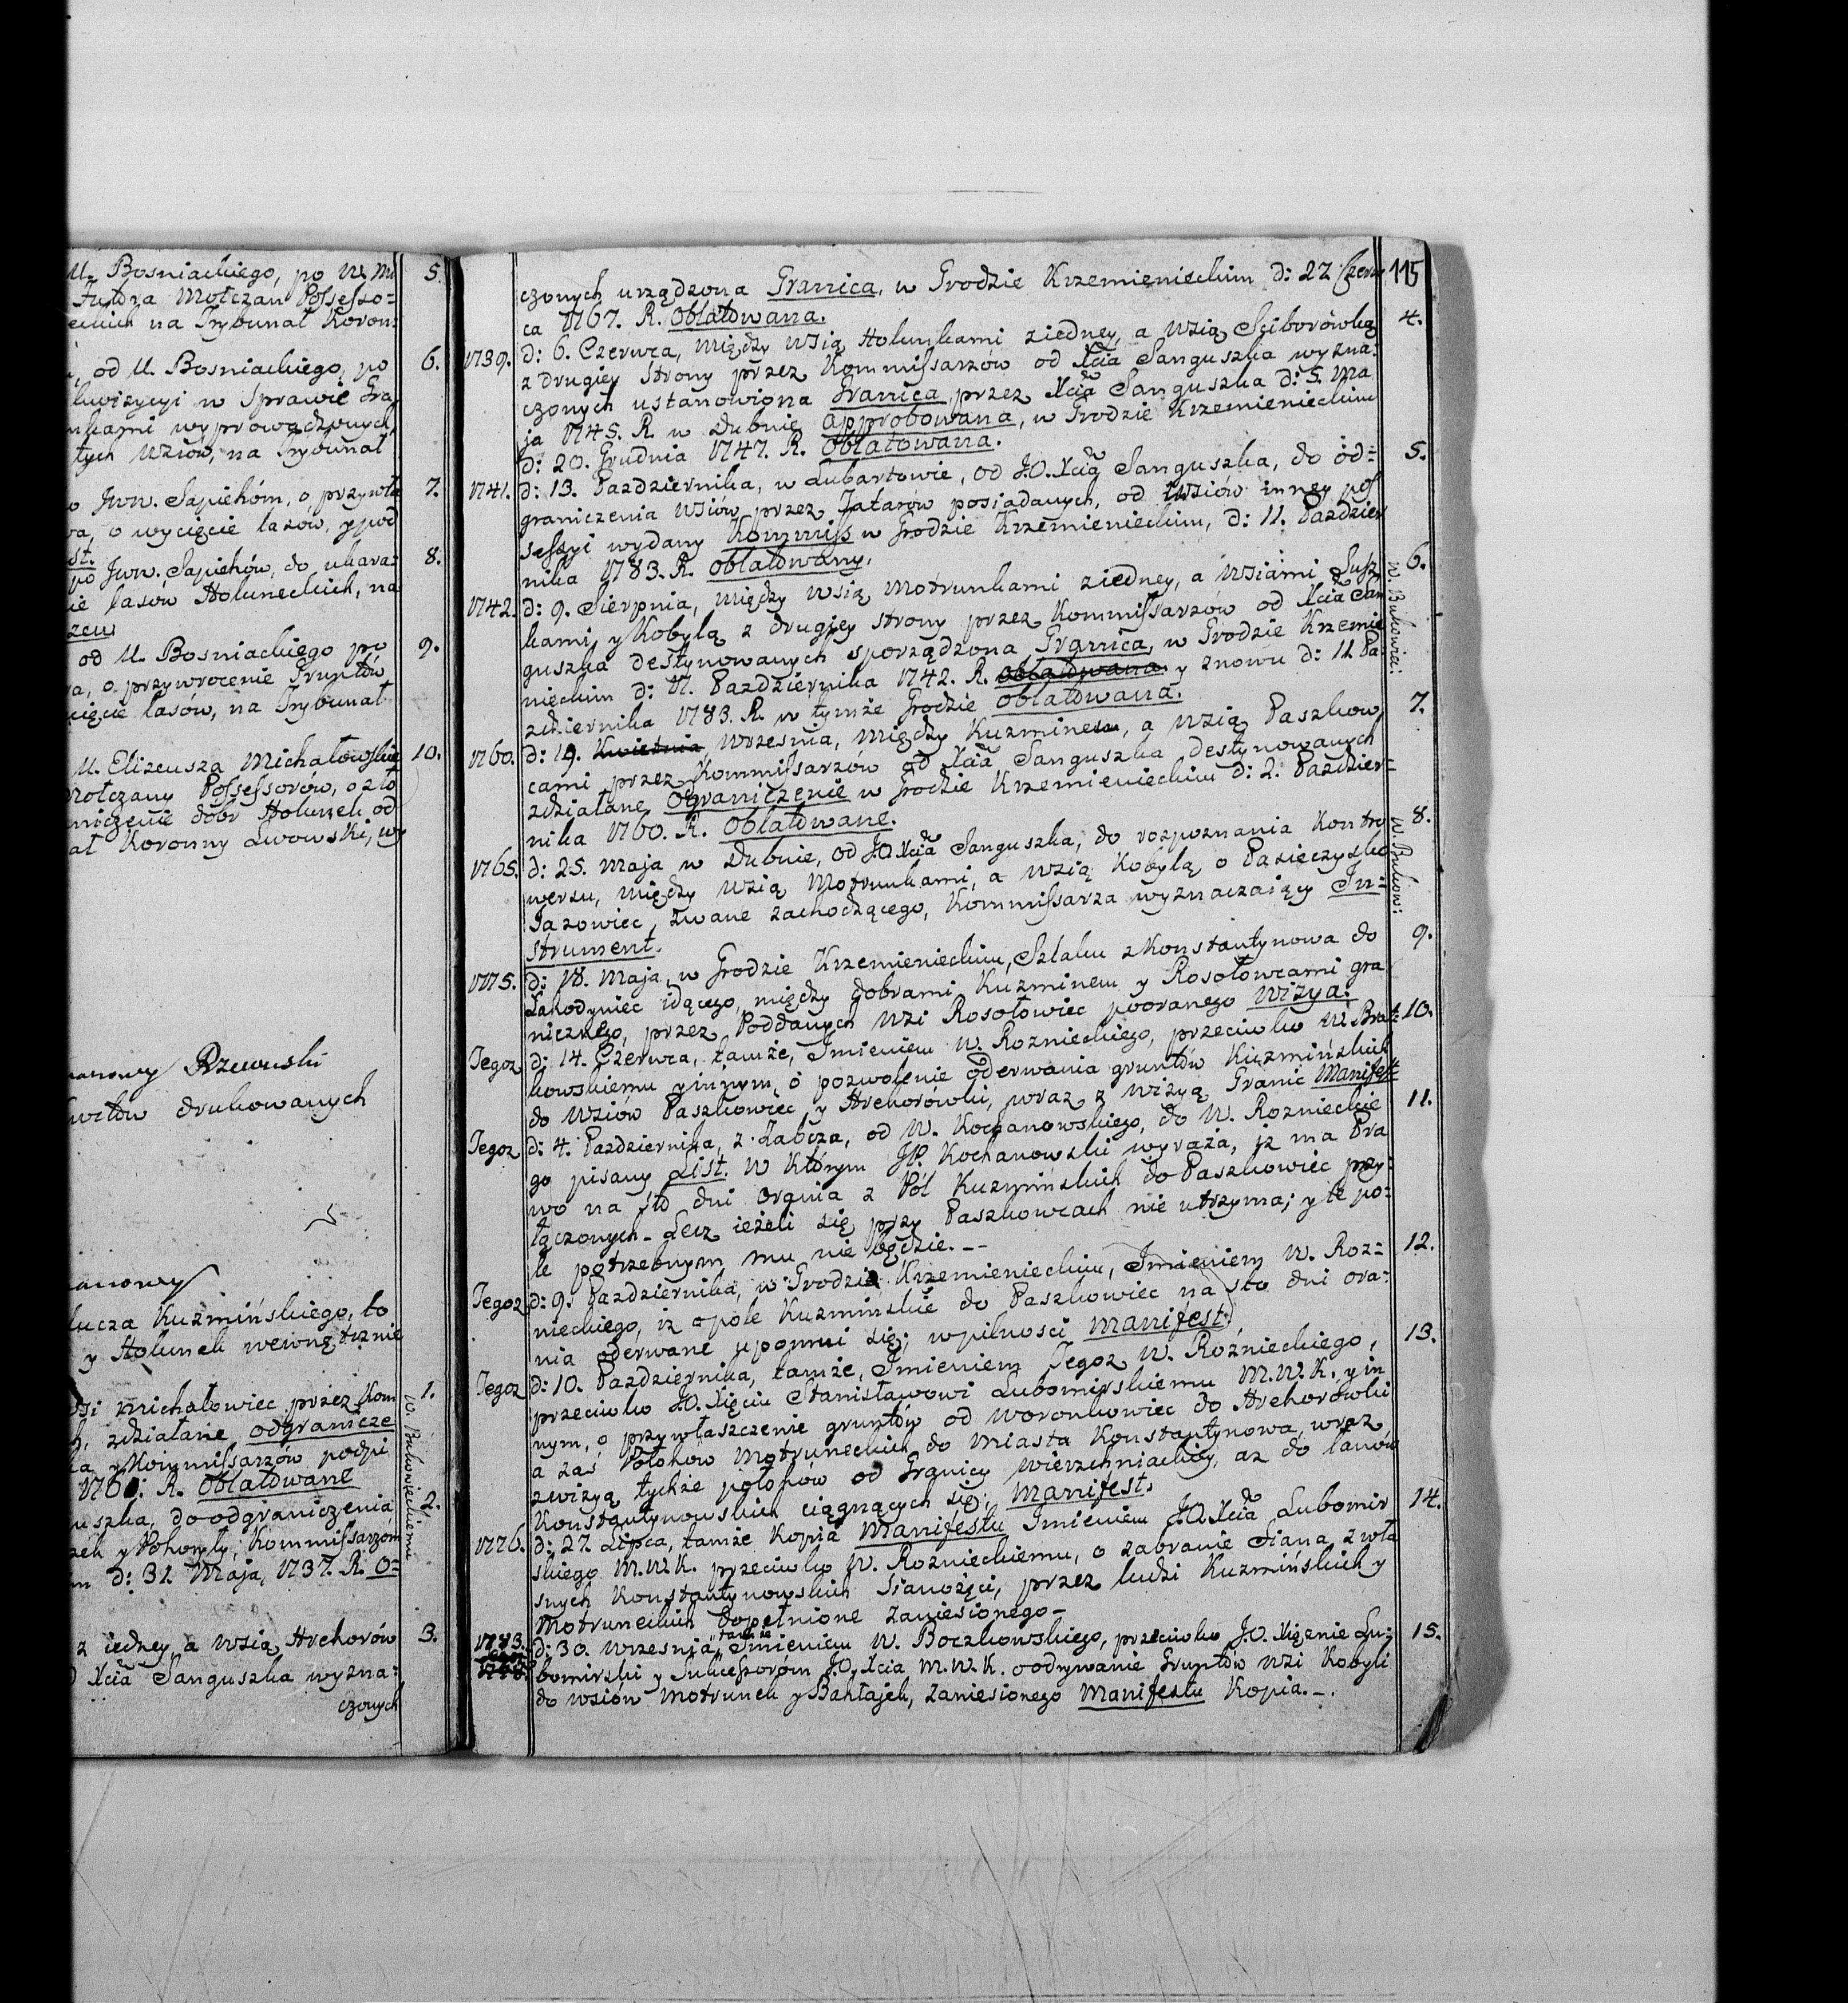 U. Bosniackiego, po W. Mi
5.
Judza Mołczan Possesso=
eckich na Trybunał Koron:
od U. Bosniackiego, po
6.
kwizycyi w Sprawie Gra
nkami wyprowadzonych,
tych Wziów, na Trybunał
Jww. Sapiehóm, o przywła
7.
o wycięcie lasów, y pod
st.
po Jww. Sapiehów, do ukara:
8.
ie lasów Holuneckich, na
zew
od U. Bosniackiego po
9.
o przywrocenie Gruntów
cięcie lasów, na Trybunał
U. Elizeusza Michałowskie
10.
Mołczany Possessorów, o zło
niczenie dobr Holunek od
at Koronny Lwowski, wy
Rzewuski
kwitów drukowanych
anowy
lucza Kuzmińskiego, to
y Holunek wewnętrznie
Wsi Michałowiec przez Kom
1.
zdziałane odgranicze
y Kommissarzów podpi
R. Oblatowane
uszka, do odgraniczenia
2.
zek y Pohoryły, Kommissarzóm
d: 31 Maja, 1737. R. O=
W. Bukowieckiemu
z iedney a wsią Hrehorów
3.
Xcia Sanguszka wyzna:
czonych
115
czonych urządzona Granica, w Grodzie Krzemienieckim d: 27 Czerw
ca 1767. R. Oblatowana.
4.
1739. d: 6. Czerwca, między Wsią Holunkami ziedney, a Wsią Sciborówką
z drugiey Strony przez Kommissarzów od Xcia Sanguszka wyzna:
czonych ustanowiona Granica, przez Xcia Sanguszka d: 5. Ma
ja 1745. R. w Dubnie approbowana, w Grodzie Krzemienieckim
d: 20. Grudnia 1747. R. Oblatowana.
5.
1741. d: 13. Pazdziernika, w Lubartowie, od JO. Xcia Sanguszka, do od=
graniczenia wsiów przez Tatarów posiadanych, od Wsiów inney pos
sessyi wydany Kommiss w Grodzie Krzemienieckim, d: 11. Pazdzier
nika 1783. R. Oblatowany.
6.
1742. d: 9. Sierpnia, między Wsią Motrunkami ziedney, a Wsiami Susz
kami, y Kobylą z drugiey strony przez Kommissarzów od Xcia San
guszka destynowanych sporządzona Granica, w Grodzie Krzemie
nieckim d: 17. Pazdziernika 1742. R. Oblatowana y znowu d: 11 Pa
zdziernika 1783. R. w tymże Grodzie Oblatowana.
W. Bukowiec:
7.
1760. d: 19. Kwietnia Wrzesnia, między Kuzminem, a Wsią Paszkow,
cami przez Kommissarzów od Xcia Sanguszka destynowanych
zdziałane Ograniczenie w Grodzie Krzemienieckim d: 2. Pazdzier=
nika 1760. R. Oblatowane.
8.
1765. d: 25. Maja w Dubnie, od JO Xcia Sanguszka, do rozpoznania Kontro
wersu, między Wsią Motrunkami, a Wsią Kobylą o Pasieczysko
Jazowiec zwane zachodzącego, Kommissarza wyznaczaiący In=
strument.
W. Bukow:
9.
1775. d: 18. Maja, w Grodzie Krzemienieckim, Szlaku z Konstantynowa do
Lahodyniec idącego, między dobrami Kuzminem y Rosołowcami gra
nicznego, przez Poddanych Wsi Rosołowiec pooranego Wizya:
10.
Tegoz d: 14. Czerwca, tamże, Imieniem W. Roznieckiego, przeciwko W. Brat
kowskiemu yinnym, o pozwolenie oderwania gruntów Kuzmińskich
do Wsiów Paszkowiec y Hrehorówki, wraz z wizyą Granic Manifest
11.
Tegoz d: 4. Pazdziernika, z Zabcza, od W. Kochanowskiego, do W. Roznieckie
go pisany List. W którym JP. Kochanowski wyraża, iz ma Pra
wo na sto dni orania z Pól Kuzmińskich do Paszkowiec przy
łączonych _ Lecz ieżeli się przy Paszkowcach nie utrzyma; y te po:
le potrzebnym mu nie będzie. _ _
12.
Tegoz d: 9. Pazdziernika, w Grodzie Krzemienieckim, Imieniem W. Roz=
nieckiego, iz opole Kuzmińskie do Paszkowiec na sto dni ora:
nia oderwane upomni się, wpilnosci Manifest.
13.
Tegoz d: 10. Pazdziernika, tamże, Imieniem Tegoz W. Roznieckiego,
przeciwko JO. Xięciu Stanisławowi Lubomirskiemu M. W. K. y in
nym, o przywłaszczenie gruntów od Woronkowiec do Hrehorówki
a zaś Połohów Motruneckich do Miasta Konstantynowa, wraz
zwizyą tychże połohów od Granicy Wierzchniackiey, az do łanów
Konstantynowskich ciągnących się; Manifest.
14.
1776. d: 27. Lipca, tamże Kopia Manifestu Imieniem JO. Xcia Lubomir
skiego M. W. K. przeciwko W. Roznieckiemu, o zabranie Siana z wła
snych Konstantynowskich Sianożęci, przez ludzi Kuzmińskich y
Motruneckich dopełnione zaniesionego _
15.
1783. d: 30. Wrzesnia, tamże Imieniem W. Boczkowskiego, przeciwko J.O. Xiężnie Lu:
bomirski y Sukcessoróm JO. Xcia M. W. K. o odrywanie Gruntów Wsi Kobyli
do wsiów Motrunek y Bahłajek, zaniesionego Manifestu Kopia. _ .